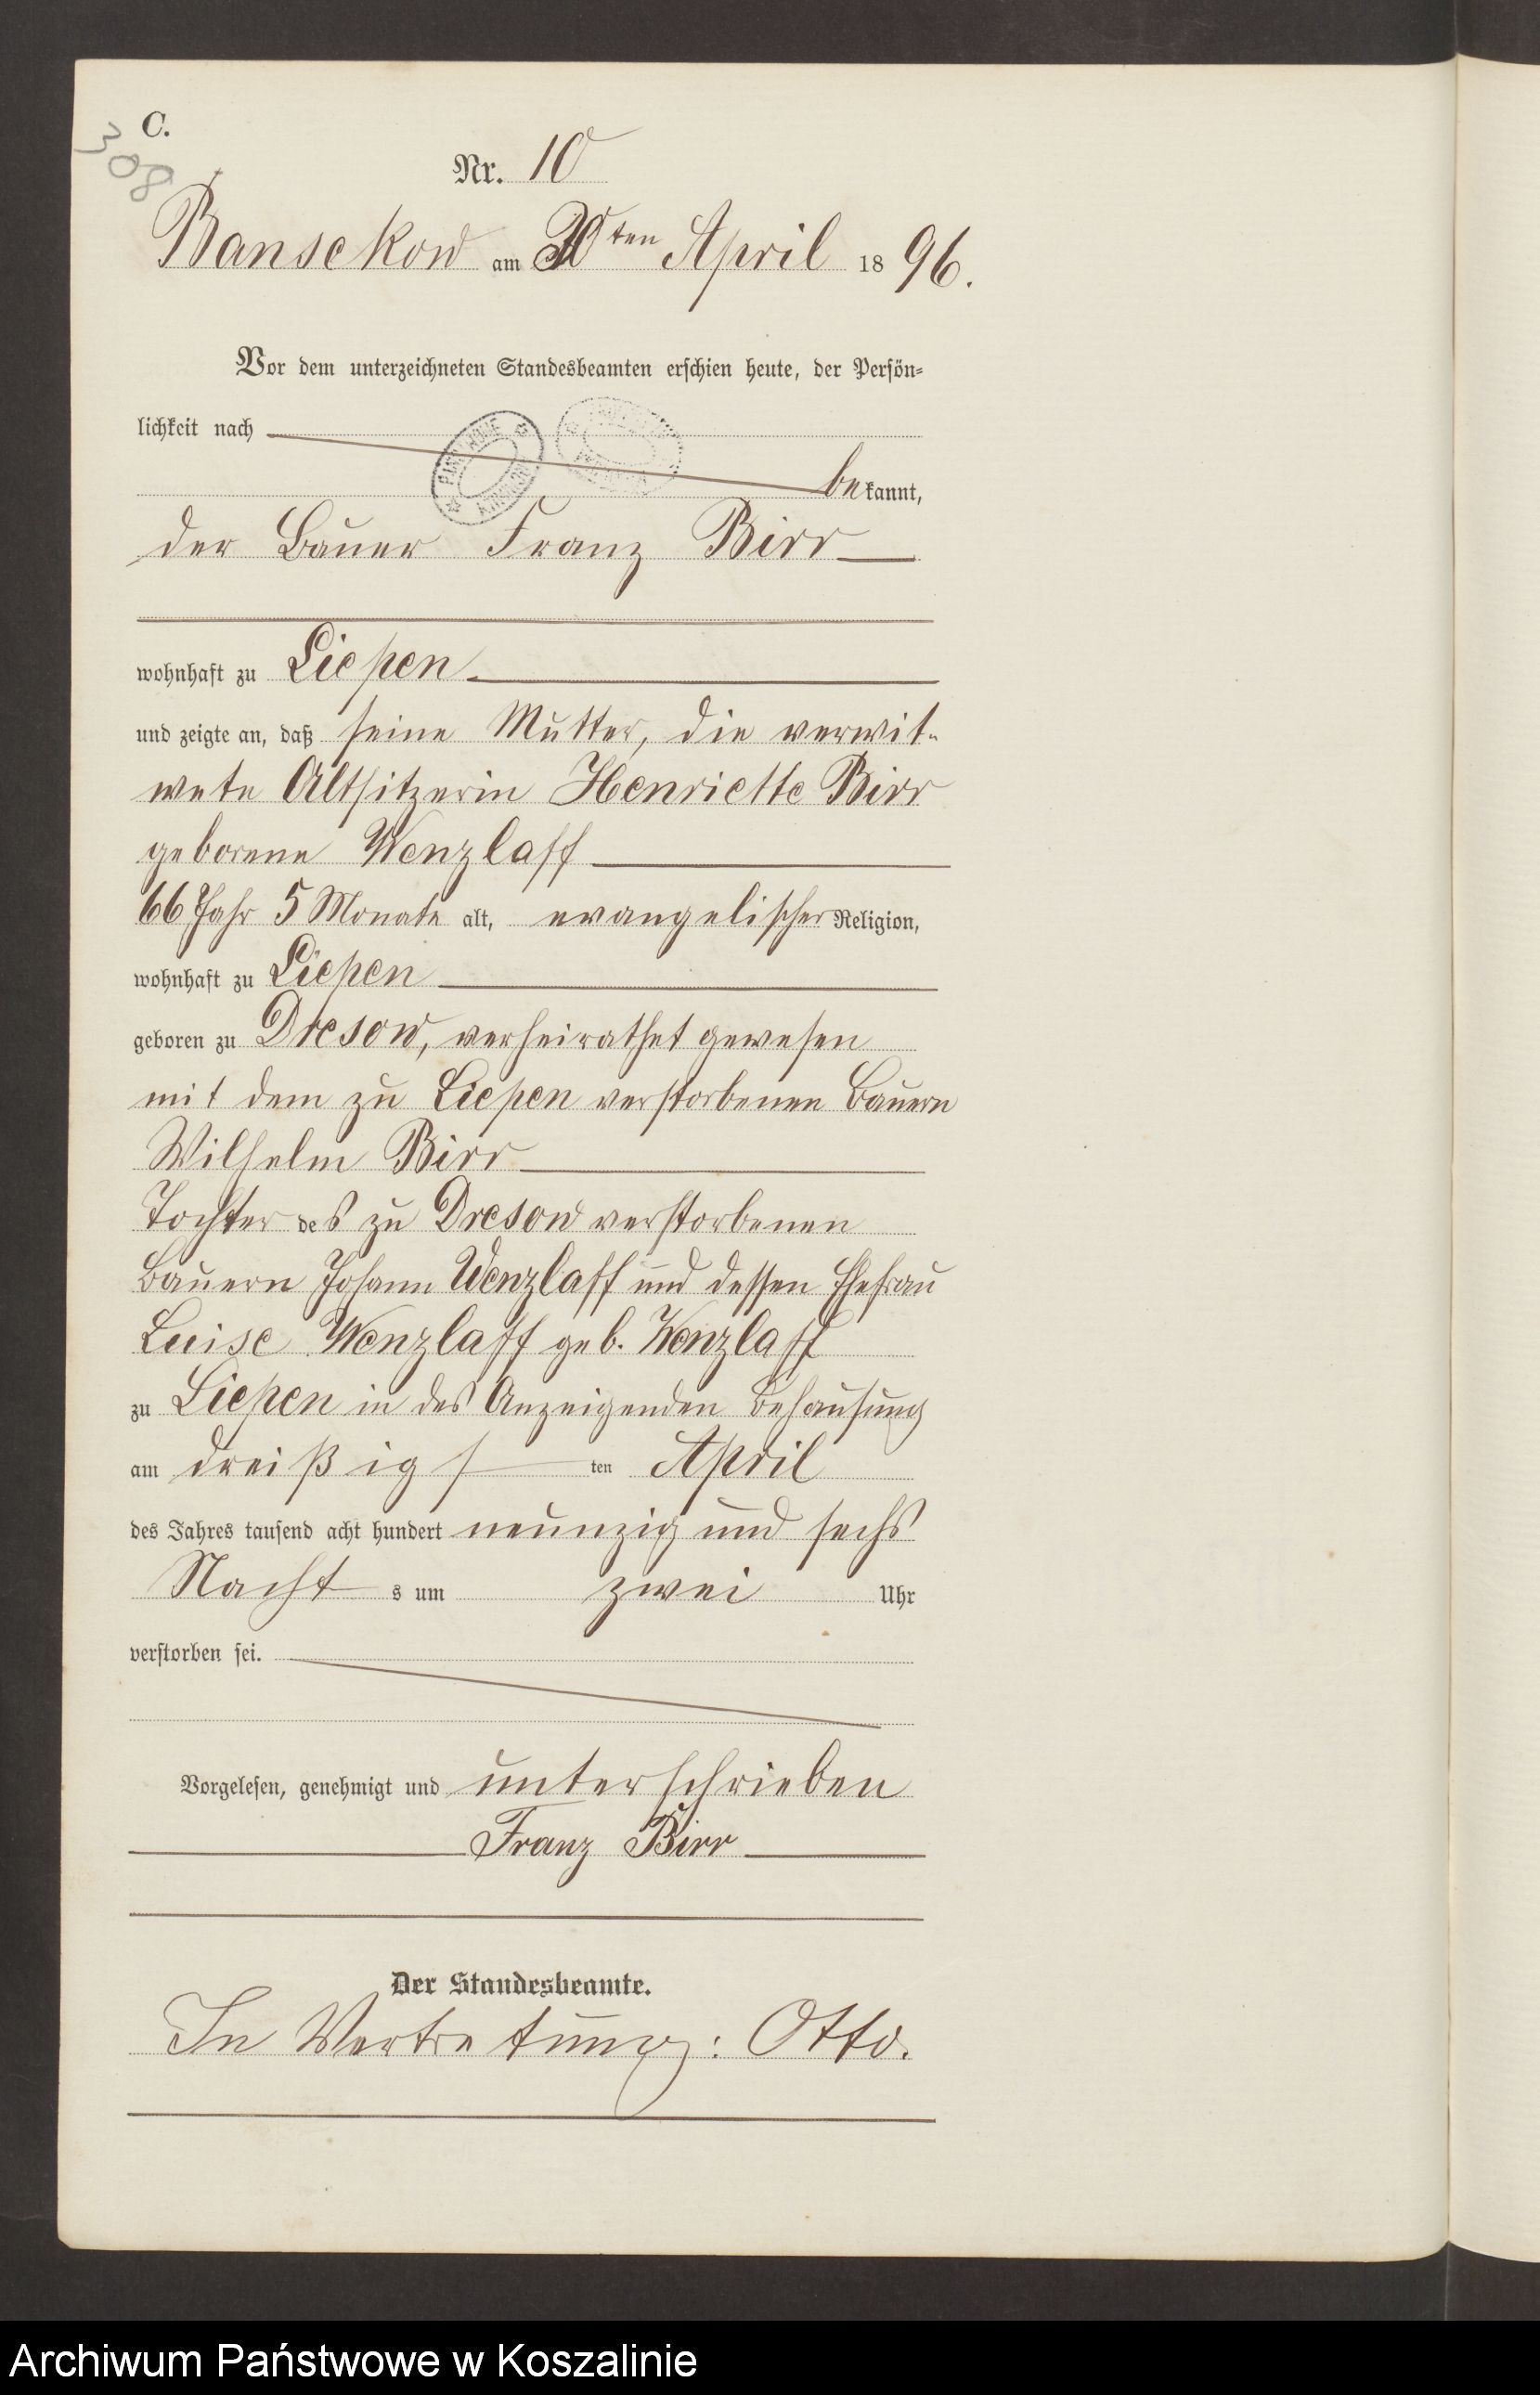 C.
308
Nr. 10
Bansekow am 30ten April 1896.
Vor dem unterzeichneten Standesbeamten erschien heute, der Persön-
lichkeit nach
bekannt,
der Bauer Franz Birr
wohnhaft zu Liepen
und zeigte an, daß seine Mutter, die verwit-
wete Altsitzerin Henriette Birr
geborene Wenzlaff
66 Jahr 5 Monate alt, evangelischer Religion,
wohnhaft zu Liepen
geboren zu Dresow, verheirathet gewesen
mit dem zu Liepen verstorbenen Bauern
Wilhelm Birr
Tochter des zu Dresow verstorbenen
Bauern Johann Wenzlaff und dessen Ehefrau
Luise Wenzlaff geb. Wenzlaff
zu Liepen in des Anzeigenden Behausung
am dreißigsten April
des Jahres tausend acht hundert neunzig und sechs
Nachts um zwei Uhr
verstorben sei.
Vorgelesen, genehmigt und unterschrieben
Franz Birr
Der Standesbeamte.
In Vertretung: Otto.
Archiwum Państwowe w Koszalinie